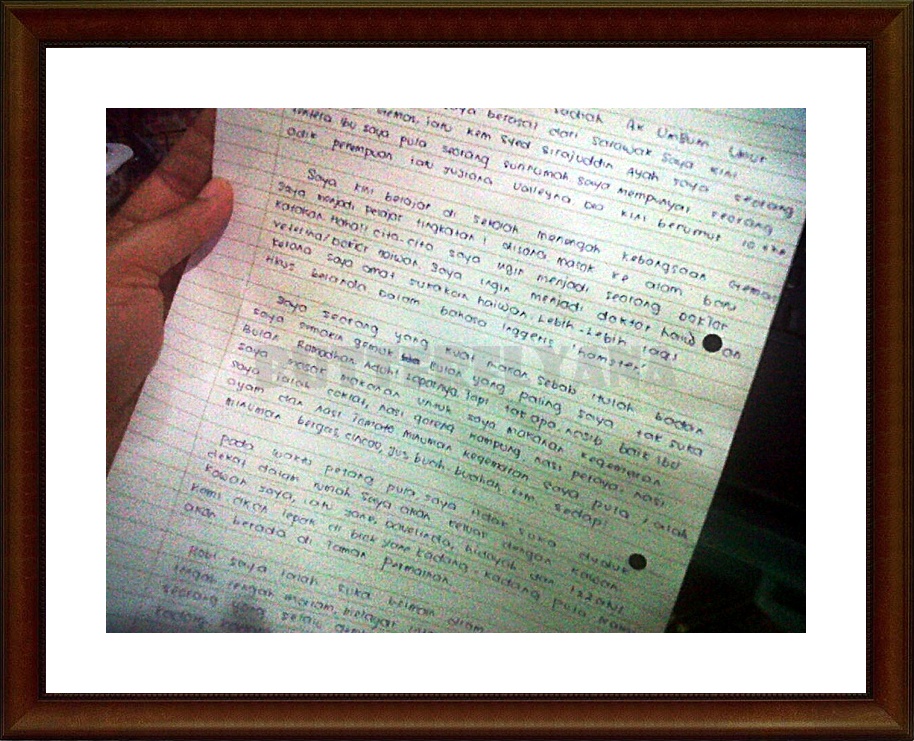 saya berasal dari Sarawak saya kini
Gemas, iaitu kem Syed Sirajuddin Ayah saya seorang
tentera Ibu saya pula seorang surirumah saya mempunyai seorang
adik perempuan iaitu Valleyna Dia kini berumur 10 thn
Saya kini belajar di sekolah menengah kebangsaan Gemas
saya menjadi pelajar tingkatan 1 disana, masuk ke alam baru
katakan Haha!! cita-cita saya ingin menjadi seorang Doktor
veterina/Doktor haiwan. Saya ingin menjadi doktor haiwan
kerana saya amat sukakan haiwan. Lebih-lebih lagi
tikus belanda Dalam bahasa Inggeris 'hamster'
Saya seorang yang kuat makan sebab itulah badan
saya semakin gemuk Bulan yang paling saya tak suka
Bulan Ramadhan. Aduh! Laparnya. Tapi tak apa, nasib baik ibu
saya masak makanan untuk saya makanan kegemaran
saya ialah coklat, nasi goreng kampung, nasi pataya, nasi
ayam dan nasi Tomato minuman kegemaran saya pula ialah
minuman bergas, cincau, jus buah-buahan, Erm, sedap!
pada waktu petang pula, saya tidak suka duduk
dekat dalam rumah saya akan keluar dengan kawan-
kawan saya, iaitu Jane, Davelinda, hidayah dan
kami akan lepak di blok yang kadang kadang pula kami
akan berada di Taman Permainan.
Hobi saya ialah suka bermain
tengah-tengah malam, melayari
seorang yang selalu
kadang
DAYREFELYANA